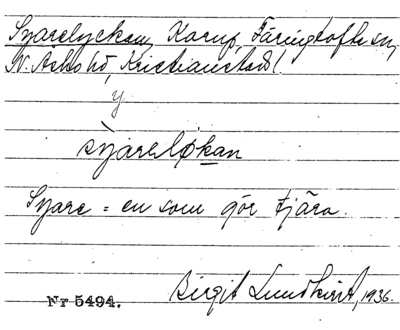 Syarelyckan, Karup, Färingtofta sn,
N. Åsbo hd, Kristianstads l.
y
syarelökan
Syare = en som gör tjära.
Birgit Lundkvist, 1936.
Nr 5494.